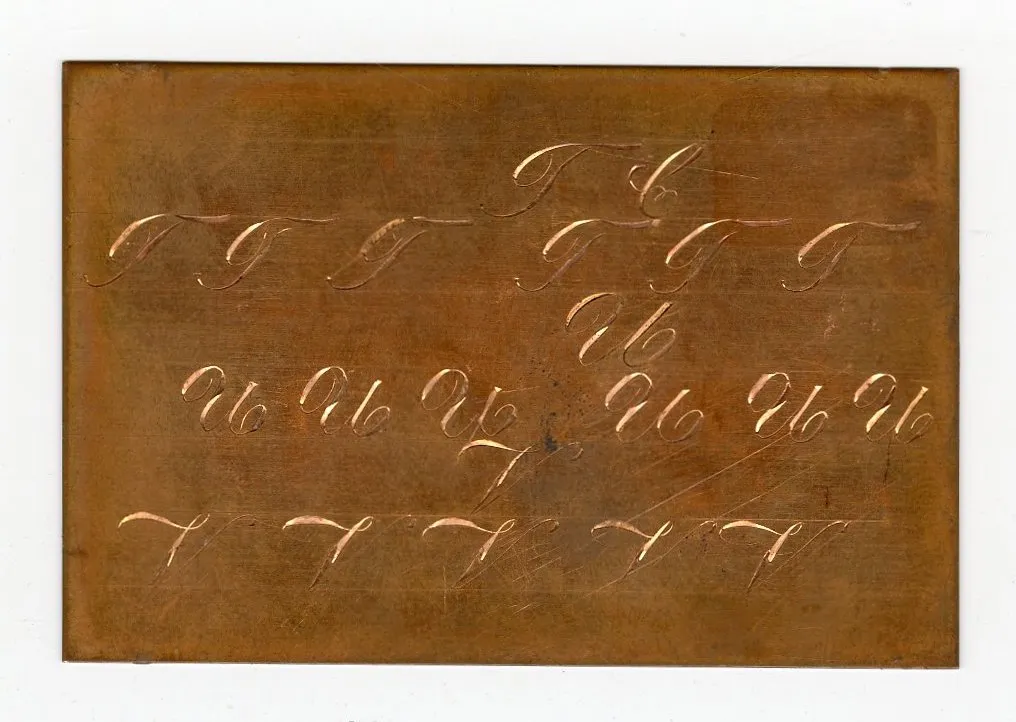 T C
T T T T T T
U
U U U U U U
V
V V V V V